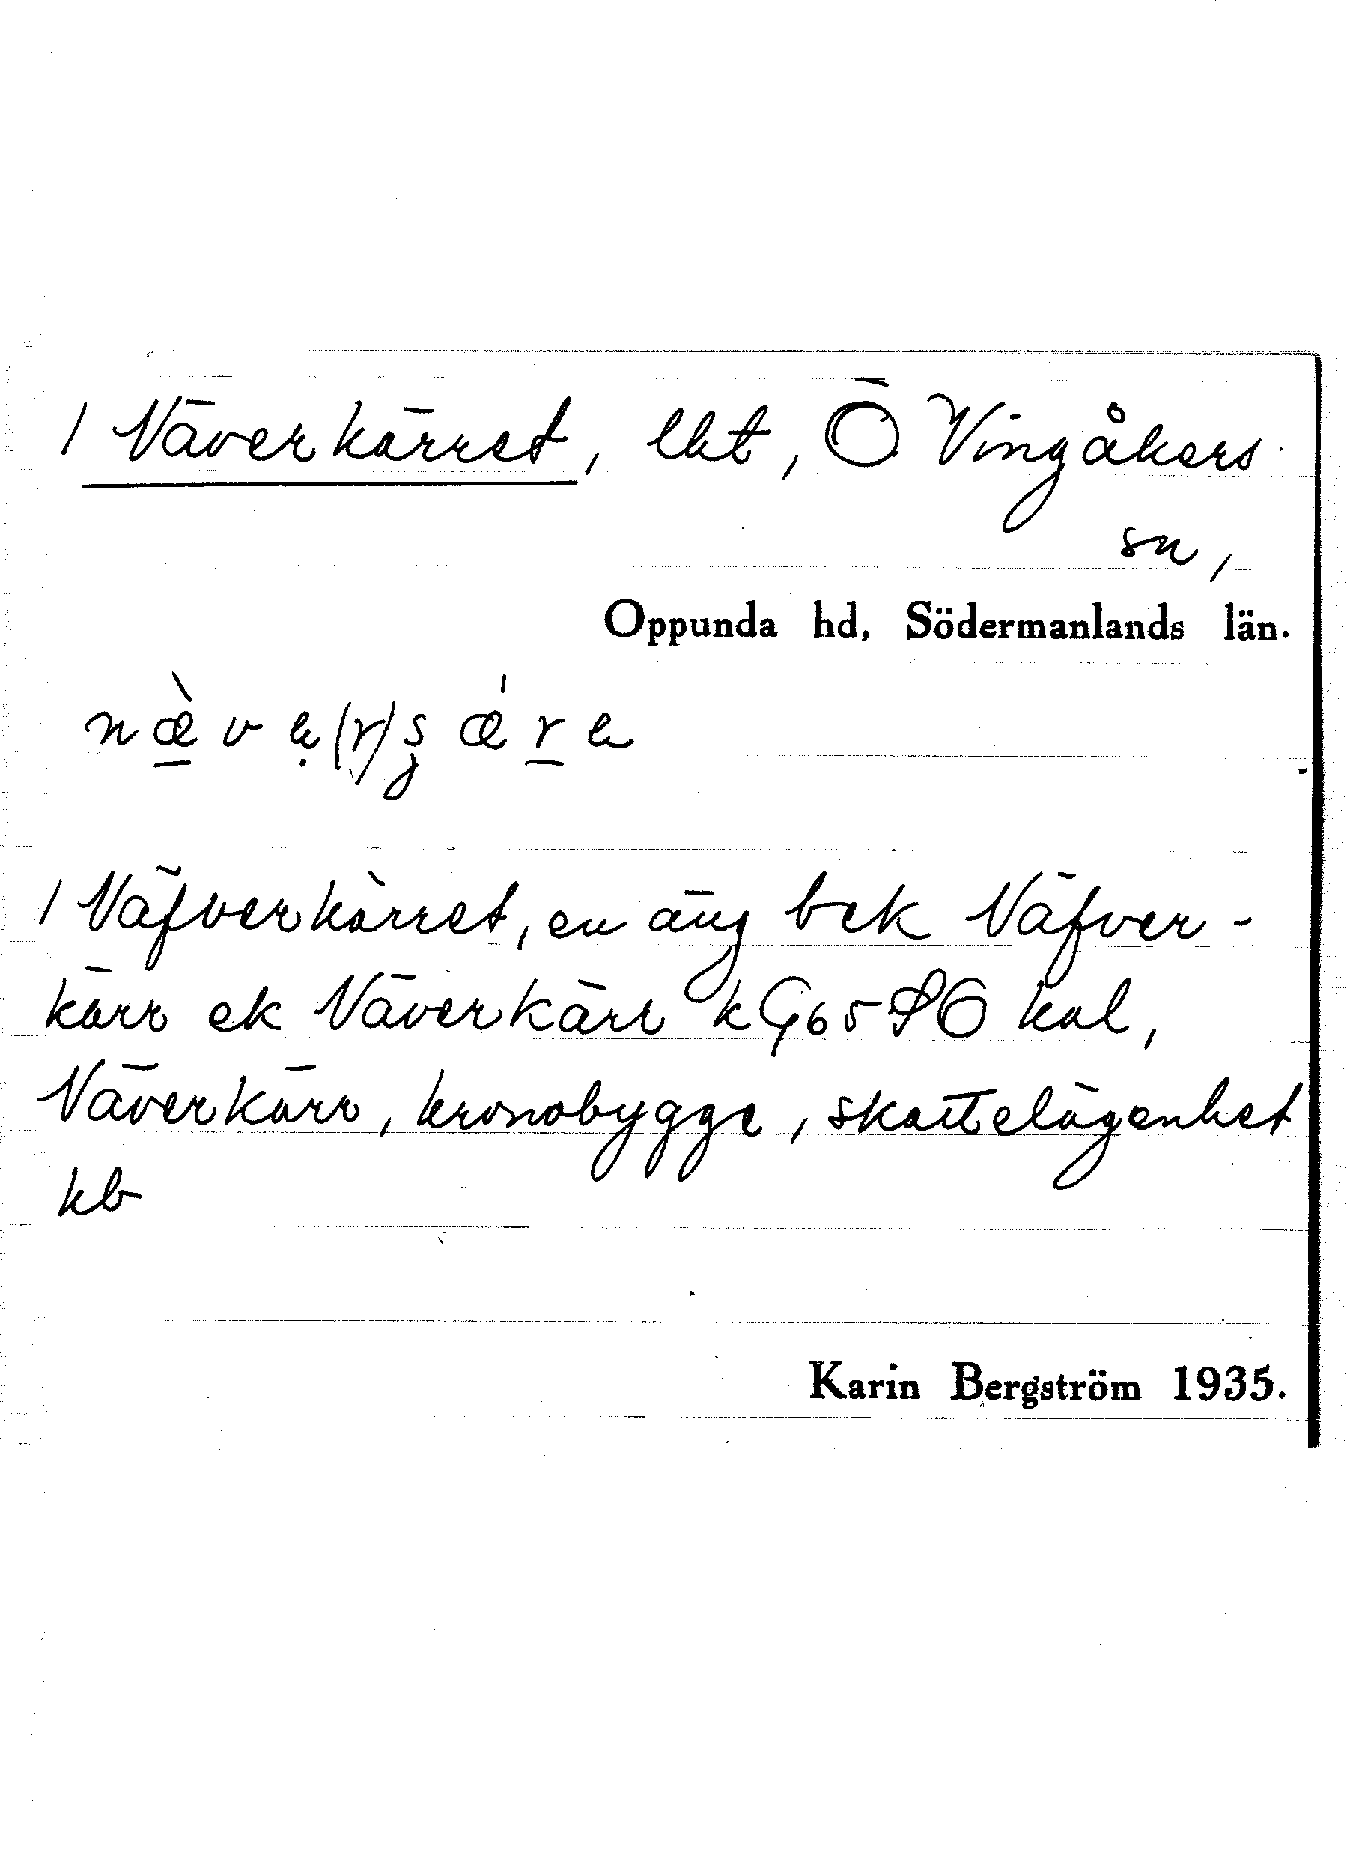 / Näverkärret, lht, Ö Vingåkers
sn,
Oppunda hd, Södermanlands län.
næ̀vẹ(r)ʂǽre
/ Näfverkärret, en äng bek Näfver-
kärr ek Näverkärr k G65 SÖ kal,
Näverkärr, kronobygge, skattelägenhet
kb
Karin Bergström 1935.